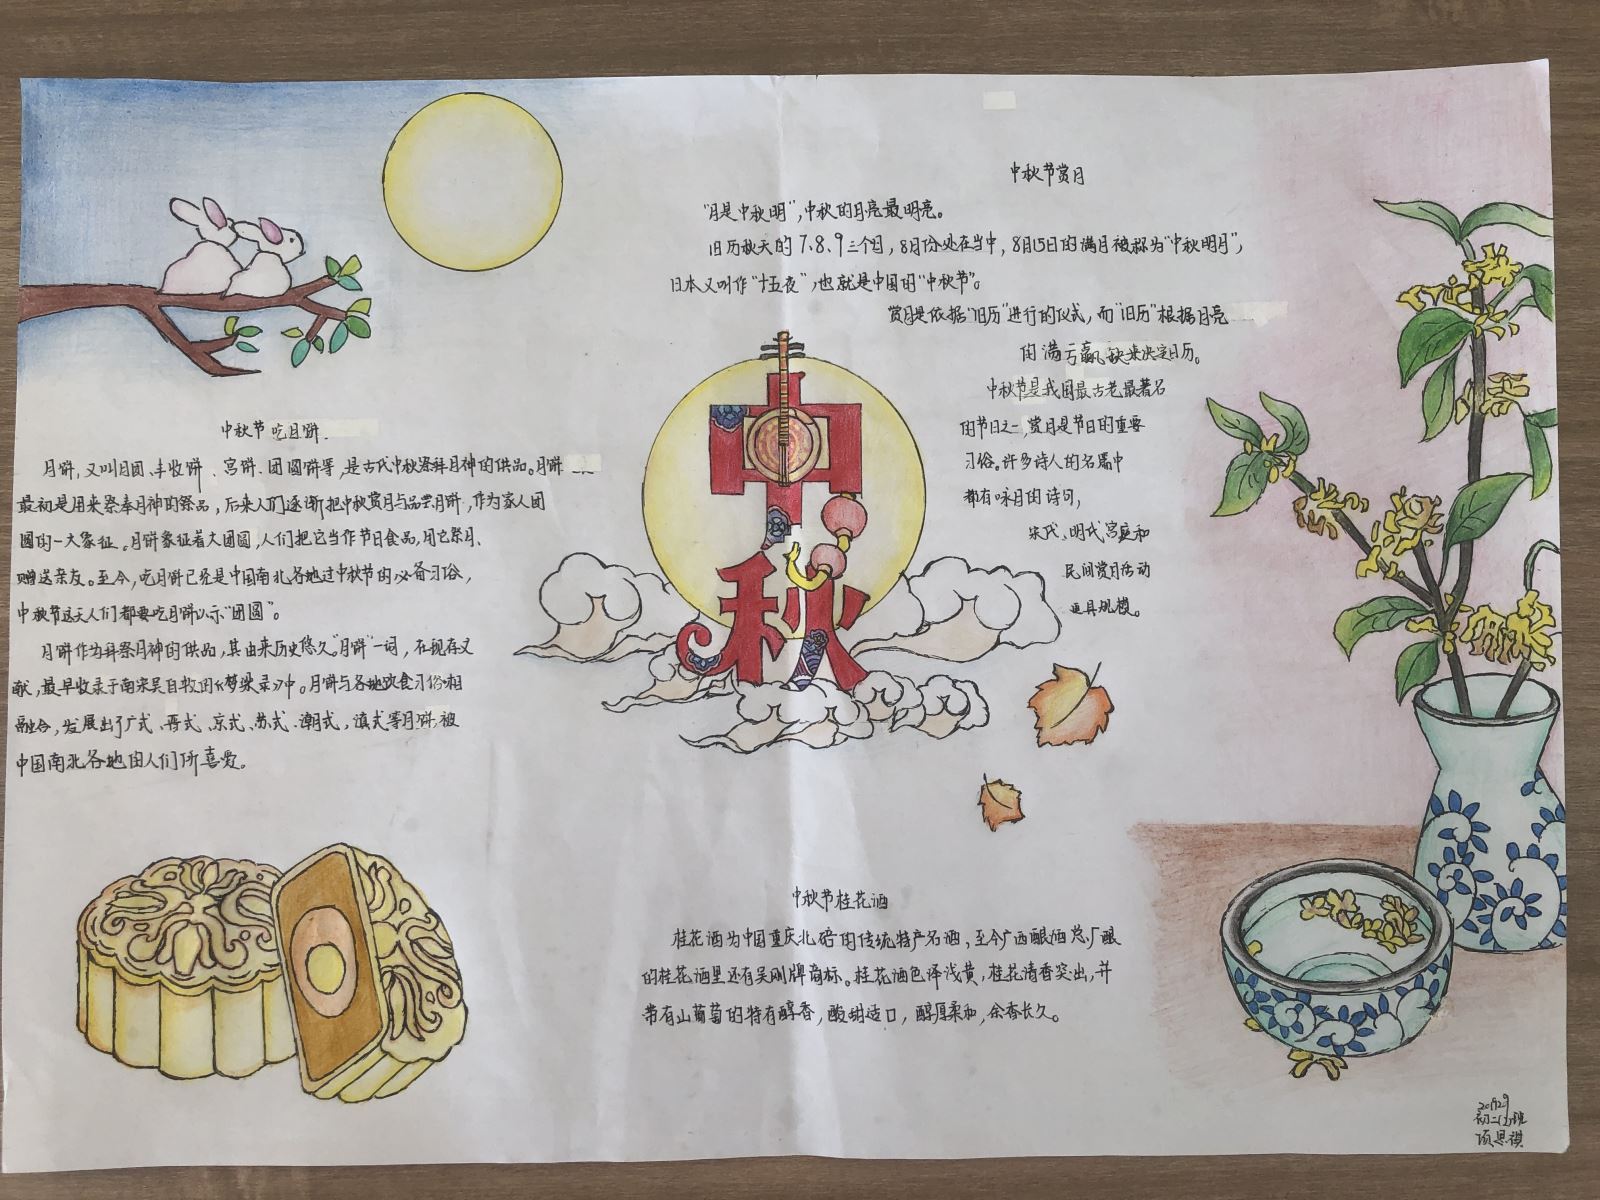 中秋节赏月
"月是中秋明",中秋的月亮最明亮。
旧历秋天的7、8、9三个月,8月份处在当中,8月15日的满月被称为"中秋明月",
日本又叫作"十五夜",也就是中国的"中秋节"。
赏月是依据"旧历"进行的仪式,而"旧历"根据月亮
的满亏赢缺来决定日历。
中秋节是我国最古老最著名
的节日之一,赏月是节日的重要
习俗。许多诗人的名篇中
都有咏月的诗句,
宋代、明代宫庭和
民间赏月活动
更具规模。
中秋
中秋节吃月饼
月饼,又叫月团、丰收饼、宫饼、团圆饼等,是古代中秋祭拜月神的供品。月饼
最初是用来祭奉月神的祭品,后来人们逐渐把中秋赏月与品尝月饼,作为家人团
圆的一大象征。月饼象征着大团圆,人们把它当作节日食品,用它祭月、
赠送亲友。至今,吃月饼已经是中国南北各地过中秋节的必备习俗,
中秋节这天人们都要吃月饼以示"团圆"。
月饼作为拜祭月神的供品,其由来历史悠久。"月饼"一词,在现存文
献,最早收录于南宋吴自牧的《梦梁录》中。月饼与各地饮食习俗相
融合,发展出了广式、晋式、京式、苏式、潮式,滇式等月饼,被
中国南北各地的人们所喜爱。
中秋节桂花酒
桂花酒为中国重庆北碚的传统特产名酒,至今广西酿酒总厂酿
的桂花酒里还有吴刚牌商标。桂花酒色泽浅黄,桂花清香突出,并
带有山葡萄的特有醇香,酸甜适口,醇厚柔和,余香长久。
初二(2)班